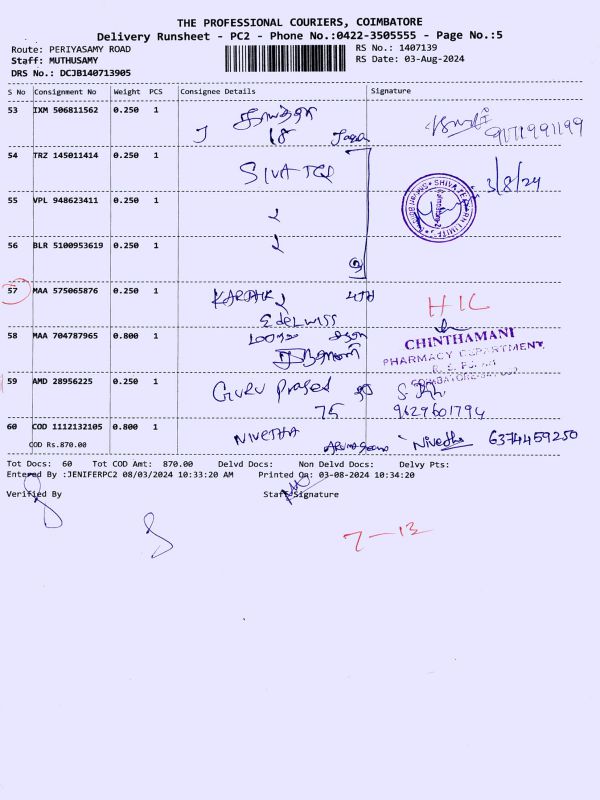 THE PROFESSIONAL COURIERS, COIMBATORE
Delivery Runsheet - PC2 - Phone No.:0422-3505555 - Page No.:5
Route: PERIYASAMY ROAD RS No.: 1407139
Staff: MUTHUSAMY RS Date: 03-Aug-2024
DRS No.: DCJB140713905
S No Consignment No Weight PCS Consignee Details Signature
53 IXM 506811562 0.250 1
18
54 TRZ 145011414 0.250 1 SIVA TEX
3/8/24
55 VPL 948623411 0.250 1
56 BLR 5100953619 0.250 1
57 MAA 575065876 0.250 1 4TH HIL
Edelwiss
58 MAA 704787965 0.800 1
CHINTHAMANI
PHARMACY DEPARTMENT,
59 AMD 28956225 0.250 1 Guru Prased
75 9629601794
60 COD 1112132105 0.800 1 NIVETHA Nivedha 6374459250
COD Rs.870.00
Tot Docs: 60 Tot COD Amt: 870.00 Delvd Docs: Non Delvd Docs: Delvy Pts:
Entered By :JENIFERPC2 08/03/2024 10:33:20 AM Printed On: 03-08-2024 10:34:20
Verified By Staff Signature
7-12